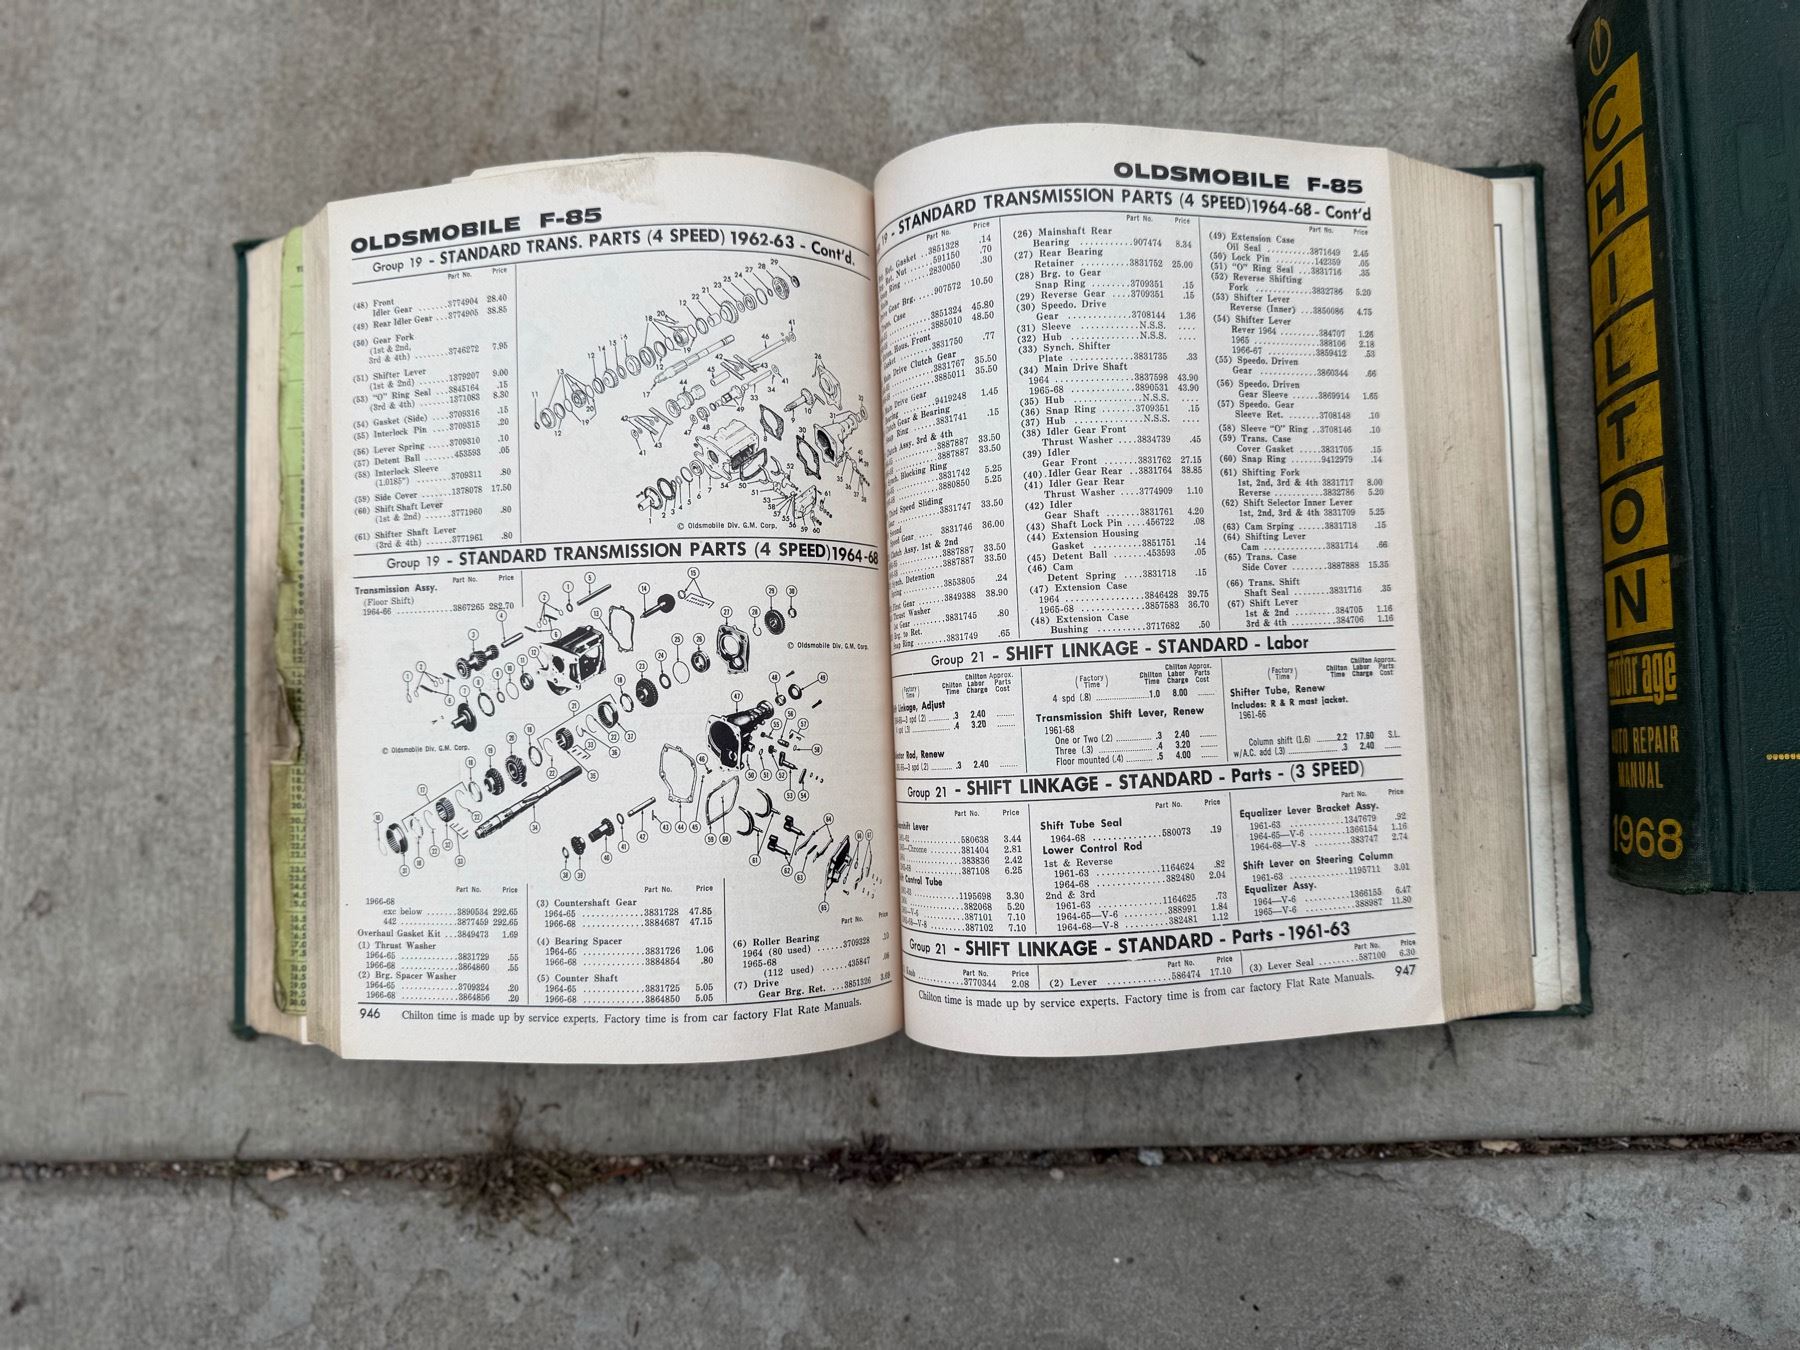 OLDSMOBILE F-85
Group 19 - STANDARD TRANS. PARTS (4 SPEED) 1962-63 - Cont'd.
Part No. Price
(48) Front
Idler Gear ....3774904 28.40
(49) Rear Idler Gear ...3774905 38.85
(50) Gear Fork
(1st & 2nd,
3rd & 4th) .......3746272 7.95
(51) Shifter Lever
(1st & 2nd) .......1379207 9.00
(53) "O" Ring Seal ..3845164 .15
(3rd & 4th) .......1371083 8.30
(54) Gasket (Side) ...3709316 .15
(55) Interlock Pin ...3709315 .20
(56) Lever Spring ....3709310 .10
(57) Detent Ball ......453593 .05
(58) Interlock Sleeve
(1.0185") ........3709311 .80
(59) Side Cover ......1378078 17.50
(60) Shift Shaft Lever
(1st & 2nd) ......3771960 .80
(61) Shifter Shaft Lever
(3rd & 4th) ......3771961 .80
© Oldsmobile Div. G.M. Corp.
Group 19 - STANDARD TRANSMISSION PARTS (4 SPEED) 1964-68
Part No. Price
Transmission Assy.
(Floor Shift)
1964-66 ..............3867265 282.70
© Oldsmobile Div. G.M. Corp.
© Oldsmobile Div. G.M. Corp.
Part No. Price
1966-68
exc below .......3890534 292.65
442 ...............3877459 292.65
Overhaul Gasket Kit ...3849473 1.69
(1) Thrust Washer
1964-65 ..............3831729 .55
1966-68 ..............3864860 .55
(2) Brg. Spacer Washer
1964-65 ..............3709324 .20
1966-68 ..............3864856 .20
Part No. Price
(3) Countershaft Gear
1964-65 ..............3831728 47.85
1966-68 ..............3884687 47.15
(4) Bearing Spacer
1964-65 ..............3831726 1.06
1966-68 ..............3884854 .80
(5) Counter Shaft
1964-65 ..............3831725 5.05
1966-68 ..............3864850 5.05
Part No. Price
(6) Roller Bearing
1964 (80 used) .......3709328 .10
1965-68
(112 used) .......435847 .06
(7) Drive
Gear Brg. Ret. ...3851326 3.65
946 Chilton time is made up by service experts. Factory time is from car factory Flat Rate Manuals.
OLDSMOBILE F-85
19 - STANDARD TRANSMISSION PARTS (4 SPEED) 1964-68 - Cont'd
Part No. Price
Gasket ....3851328 .14
Nut .......591150 .70
Ring .......2830050 .30
Gear Brg. ....907572 10.50
Case
3851324 45.80
3885010 48.50
Front
3831750 .77
Drive Clutch Gear
3831767 35.50
3885011 35.50
Main Drive Gear
9419248 1.45
Gear & Bearing
Ring ........3831741 .15
Assy. 3rd & 4th
3887887 33.50
3887887 33.50
Blocking Ring
3831742 5.25
3880850 5.25
Third Speed Sliding
3831747 33.50
Speed Gear ....3831746 36.00
Assy. 1st & 2nd
3887887 33.50
3887887 33.50
Detention
Spring .........3853805 .24
First Gear ......3849388 38.90
Thrust Washer
1st Gear .......3831745 .80
to Ret.
Snap Ring ......3831749 .65
Part No. Price
(26) Mainshaft Rear
Bearing ............907474 8.34
(27) Rear Bearing
Retainer ..........3831752 25.00
(28) Brg. to Gear
Snap Ring .......3709351 .15
(29) Reverse Gear ....3709351 .15
(30) Speedo. Drive
Gear ..............3708144 1.36
(31) Sleeve ...............N.S.S. ....
(32) Hub ..................N.S.S. ....
(33) Synch. Shifter
Plate .............3831735 .33
(34) Main Drive Shaft
1964 ...............3837598 43.90
1965-68 ............3890531 43.90
(35) Hub ..................N.S.S. ....
(36) Snap Ring .......3709351 .15
(37) Hub ..................N.S.S. ....
(38) Idler Gear Front
Thrust Washer ....3834739 .45
(39) Idler
Gear Front ......3831762 27.15
(40) Idler Gear Rear ..3831764 38.85
(41) Idler Gear Rear
Thrust Washer ....3774909 1.10
(42) Idler
Gear Shaft ......3831761 4.20
(43) Shaft Lock Pin ...456722 .08
(44) Extension Housing
Gasket ...........3851751 .14
(45) Detent Ball .......453593 .05
(46) Cam
Detent Spring ....3831718 .15
(47) Extension Case
1964 ...............3846428 39.75
1965-68 ............3857583 36.70
(48) Extension Case
Bushing ..........3717682 .50
Part No. Price
(49) Extension Case
Oil Seal ..........3871649 2.45
(50) Lock Pin ..........142359 .05
(51) "O" Ring Seal ...3831716 .35
(52) Reverse Shifting
Fork ..............3832786 5.20
(53) Shifter Lever
Reverse (Inner) ...3850086 4.75
(54) Shifter Lever
Rever 1964 .........384707 1.26
1965 ................388106 2.18
1966-67 ............3859412 .53
(55) Speedo. Driven
Gear ..............3860344 .66
(56) Speedo. Driven
Gear Sleeve ......3869914 1.65
(57) Speedo. Gear
Sleeve Ret. .......3708148 .10
(58) Sleeve "O" Ring ..3708146 .10
(59) Trans. Case
Cover Gasket .....3831705 .15
(60) Snap Ring .......9412979 .14
(61) Shifting Fork
1st, 2nd, 3rd & 4th 3831717 8.00
Reverse ............3832786 5.20
(62) Shift Selector Inner Lever
1st, 2nd, 3rd & 4th 3831709 5.25
(63) Cam Srping ....3831718 .15
(64) Shifting Lever
Cam ..............3831714 .66
(65) Trans. Case
Side Cover .......3887888 15.35
(66) Trans. Shift
Shaft Seal .......3831716 .35
(67) Shift Lever
1st & 2nd ..........384705 1.16
3rd & 4th ..........384706 1.16
Group 21 - SHIFT LINKAGE - STANDARD - Labor
(Factory Time) Chilton Time Chilton Labor Charge Approx. Parts Cost
Linkage, Adjust
3 spd (.2) ............ .3 2.40
spd (.3) ............ .4 3.20
Rod, Renew
3 spd (.2) ............ .3 2.40
(Factory Time) Chilton Time Chilton Labor Charge Approx. Parts Cost
4 spd (.8) ............1.0 8.00
Transmission Shift Lever, Renew
1961-68
One or Two (.2) ............ .3 2.40
Three (.3) ............ .4 3.20
Floor mounted (.4) ............ .5 4.00
(Factory Time) Chilton Time Chilton Labor Charge Approx. Parts Cost
Shifter Tube, Renew
Includes: R & R mast jacket.
1961-66
Column shift (1.6) ............2.2 17.60 S.L.
w/A.C. add (.3) ............ .3 2.40
Group 21 - SHIFT LINKAGE - STANDARD - Parts - (3 SPEED)
Part No. Price
Lever
580638 3.44
Chrome ........381404 2.81
383836 2.42
387108 6.25
Control Tube
1195698 3.30
382068 5.20
V-6 ...........387101 7.10
V-8 ...........387102 7.10
Part No. Price
Shift Tube Seal
1964-68 ..............580073 .19
Lower Control Rod
1st & Reverse
1961-63 ............1164624 .82
1964-68 ............382480 2.04
2nd & 3rd
1961-63 ............1164625 .73
1964-65—V-6 .......388991 1.84
1964-68—V-8 .......382481 1.12
Part No. Price
Equalizer Lever Bracket Assy.
1961-63 ..............1347679 .92
1964-65—V-6 .........1366154 1.16
1964-68—V-8 .........383747 2.74
Shift Lever on Steering Column
1961-63 ..............1195711 3.01
Equalizer Assy.
1964—V-6 ............1366155 6.47
1965—V-6 ............388987 11.80
Group 21 - SHIFT LINKAGE - STANDARD - Parts - 1961-63
Part No. Price
Knob ..........3770344 2.08
Part No. Price
(2) Lever ..............586474 17.10
Part No. Price
(3) Lever Seal ..........587100 6.30
Chilton time is made up by service experts. Factory time is from car factory Flat Rate Manuals. 947
CHILTON
motor age
AUTO REPAIR
MANUAL
1968